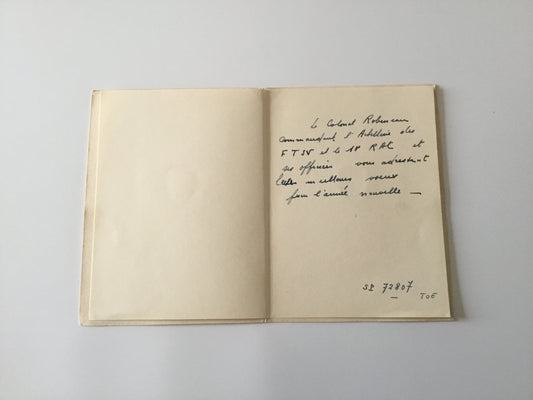 Le Colonel Robineau
Commandant l'Artillerie des
F T S V et le 41e RAC et
ses officiers vous adressent
leurs meilleurs voeux
pour l'année nouvelle —
SP 72807
TOE